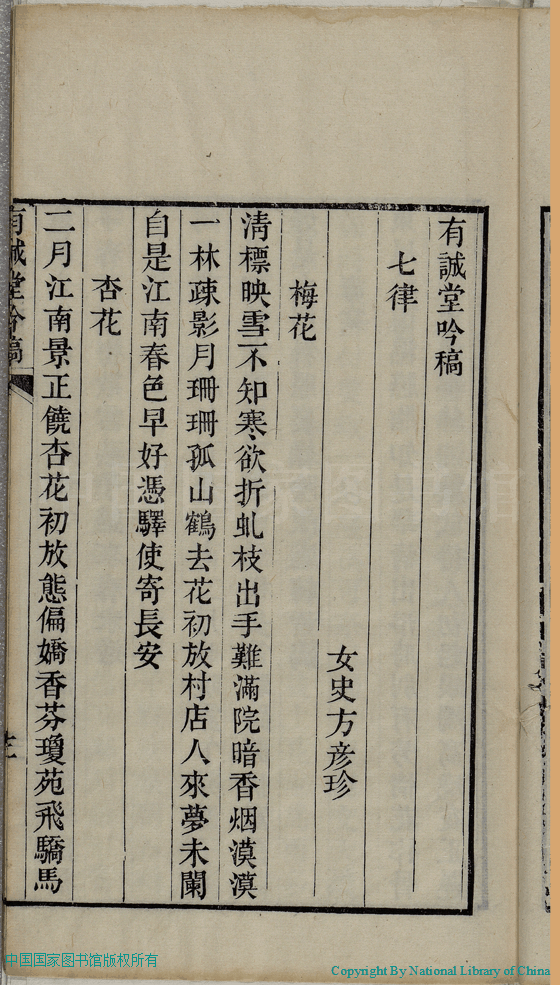 有誠堂吟稿
七律
女史方彦珍
梅花
清標映雪不知寒欲折虬枝出手難滿院暗香烟漠漠
一林疎影月珊珊孤山鶴去花初放村店人來夢未闌
自是江南春色早好憑驛使寄長安
杏花
二月江南景正饒杏花初放態偏嬌香芬瓊苑飛驕馬
有誠堂吟稿
中国国家图书馆版权所有
Copyright By National Library of China